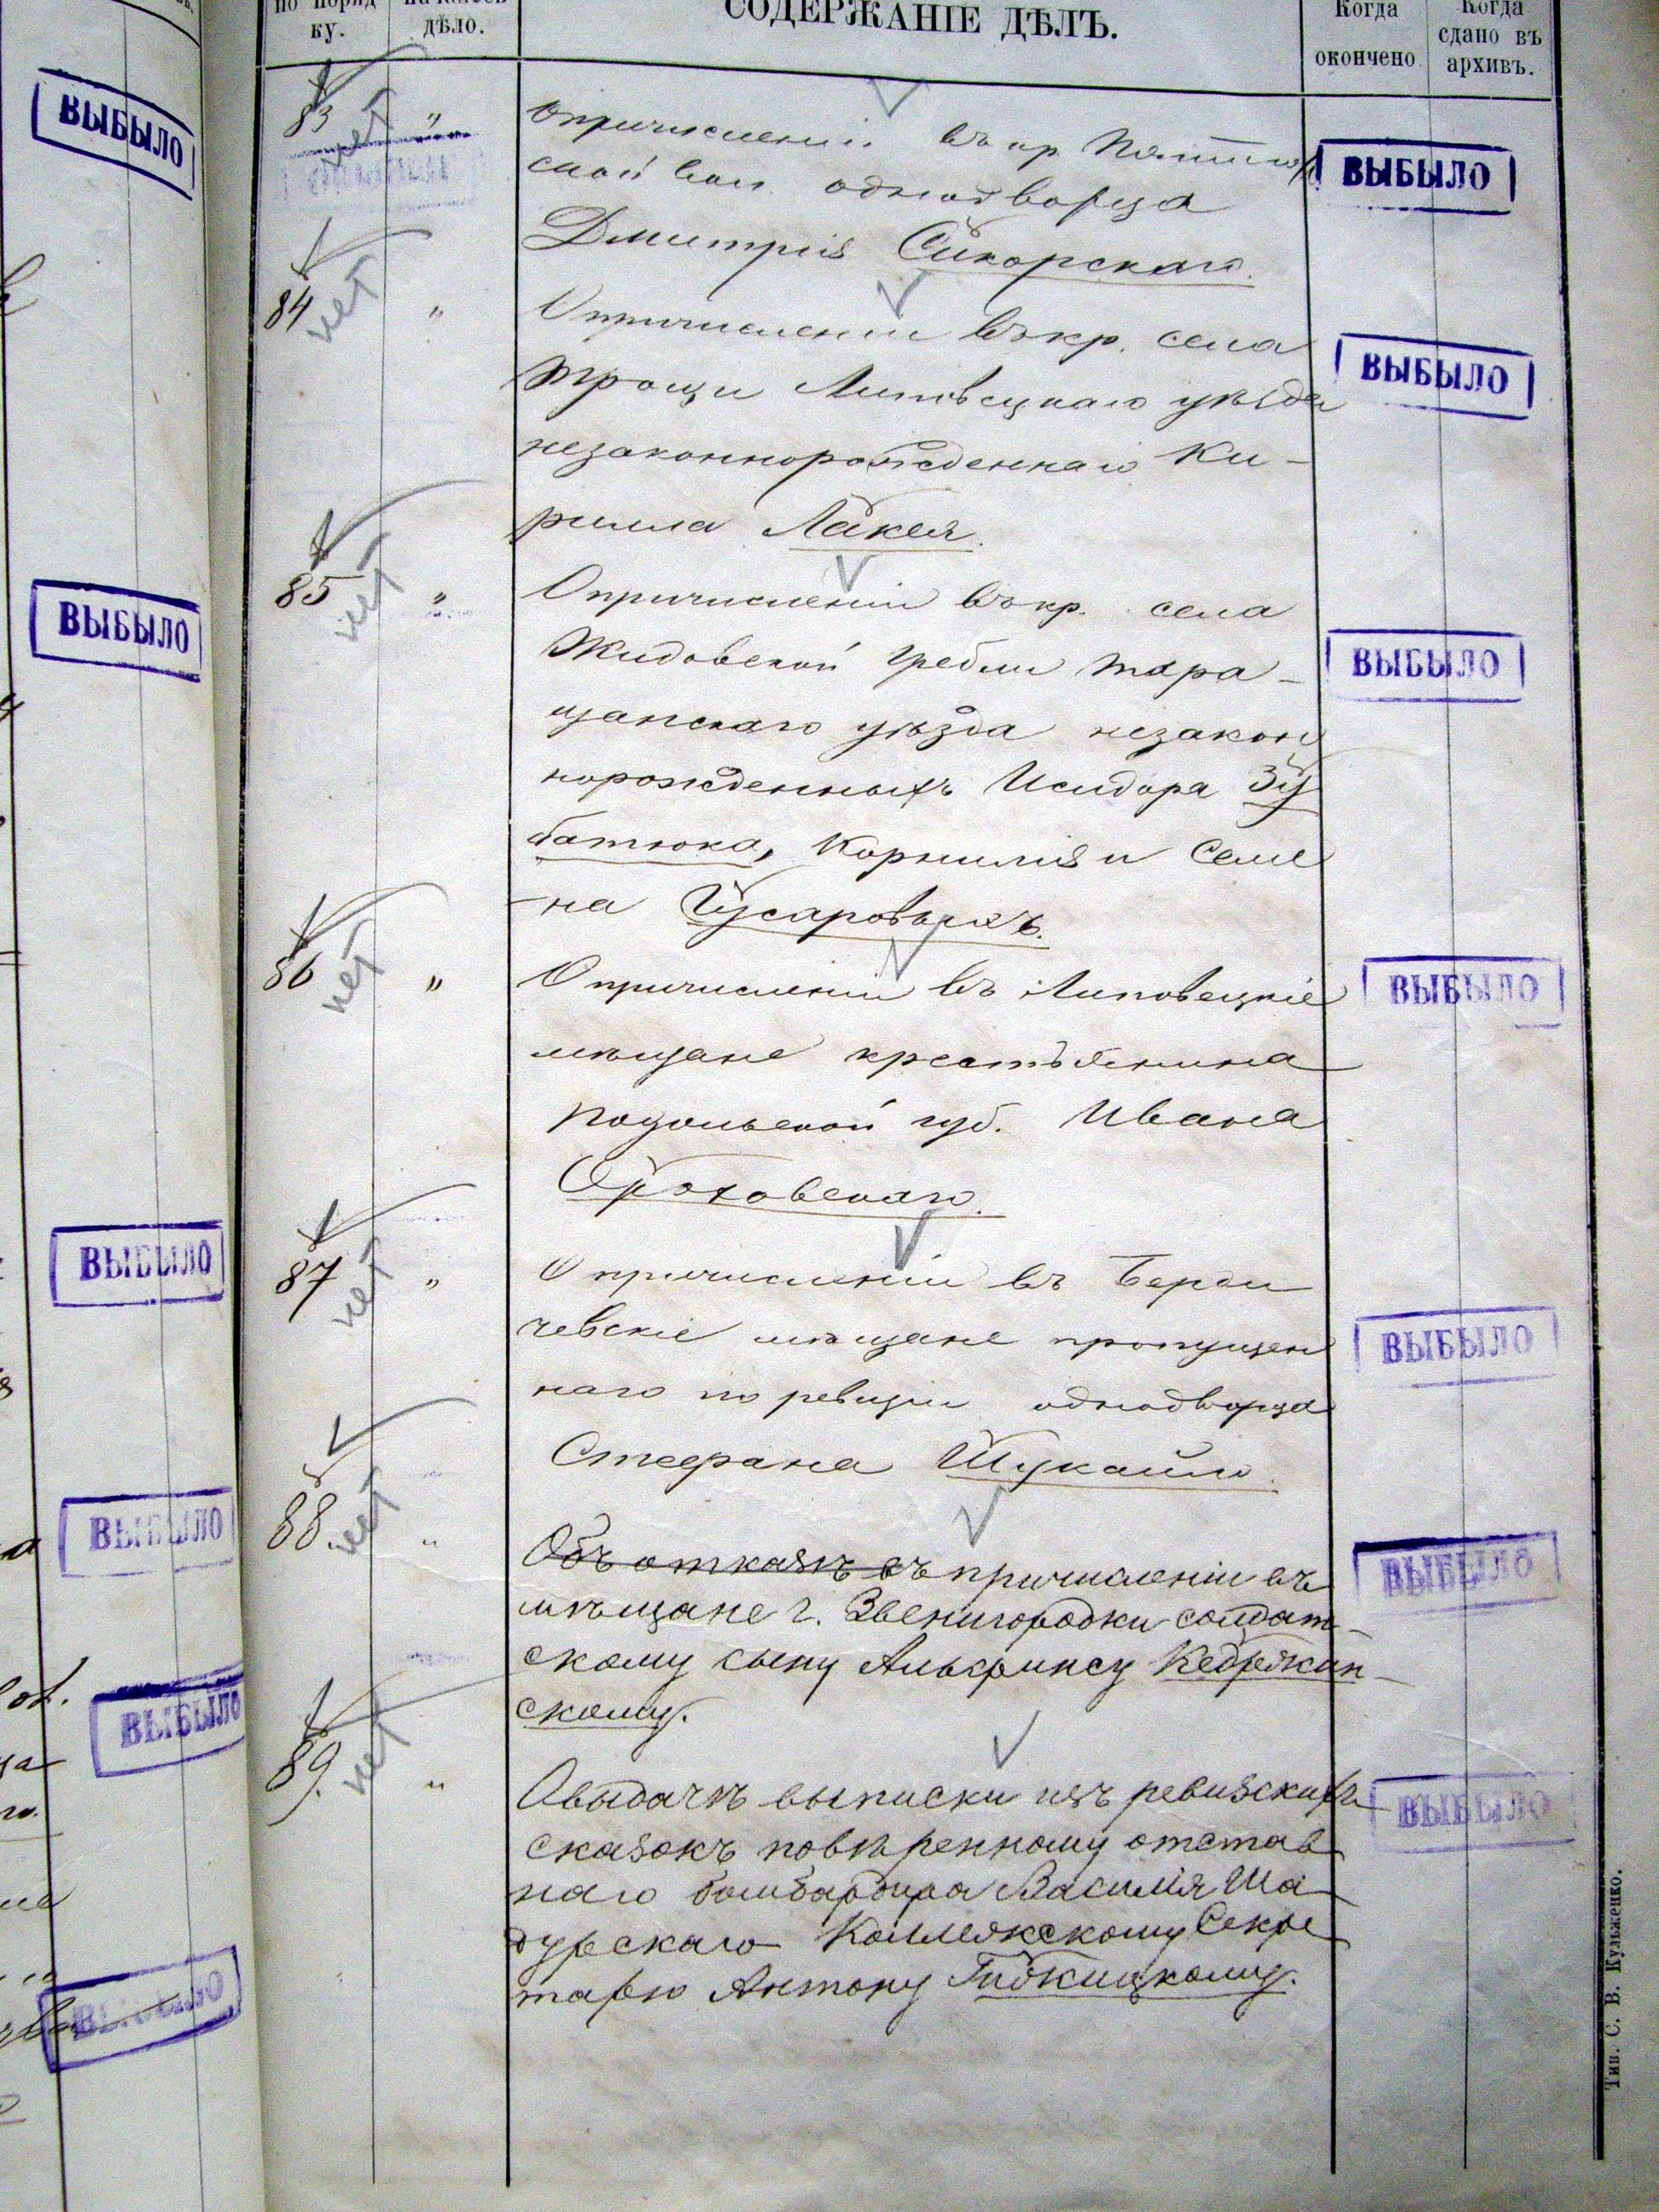 ку.
дѣло.
СОДЕРЖАНІЕ ДѢЛЪ.
Когда
окончено
Когда
сдано въ
архивъ.
83
нет
"
О причисленіи въ кр.
ской вол. однодворца
Дмитрія Сикорскаго.
ВЫБЫЛО
84
нет
"
О причисленіи въ кр. села
Трощи Липовецкаго уѣзда
незаконнорожденнаго Ки-
рилла Лакея.
ВЫБЫЛО
85
нет
"
О причисленіи въ кр. села
Жидовской Гребли Тара-
щанскаго уѣзда незакон
норожденныхъ Исидора Зу
батюка, Корнилія и Семе
на Гусаровыхъ.
ВЫБЫЛО
86
нет
"
О причисленіи въ Липовецкіе
мѣщане крестьянина
Подольской губ. Ивана
Ороховскаго.
ВЫБЫЛО
87
нет
"
О причисленіи въ Берди
чевскіе мѣщане пропущен
наго по ревизіи однодворца
Стефана Шукайло.
ВЫБЫЛО
88.
нет
"
Объ отказѣ въ причисленіи въ
мѣщане г. Звенигородки солдат-
скому сыну
скому.
ВЫБЫЛО
89.
нет
"
О выдачѣ выписки изъ ревизскихъ
сказокъ повѣренному отстав
наго бомбардира Василія Ша
дурскаго Коллежскому Секре
тарю Антону
ВЫБЫЛО
Тип. С. В. Кульженко.
ВЫБЫЛО
ВЫБЫЛО
ВЫБЫЛО
ВЫБЫЛО
ВЫБЫЛО
ВЫБЫЛО